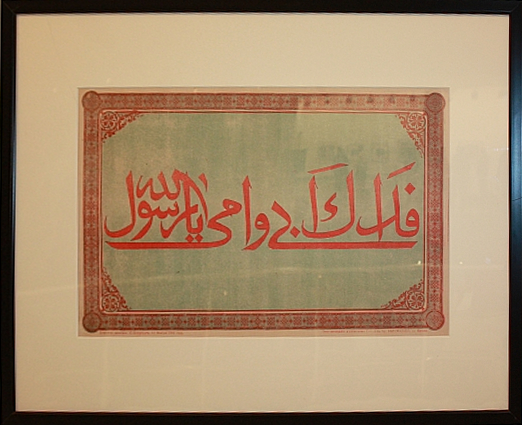 فداك ابي وامي يا رسول الله